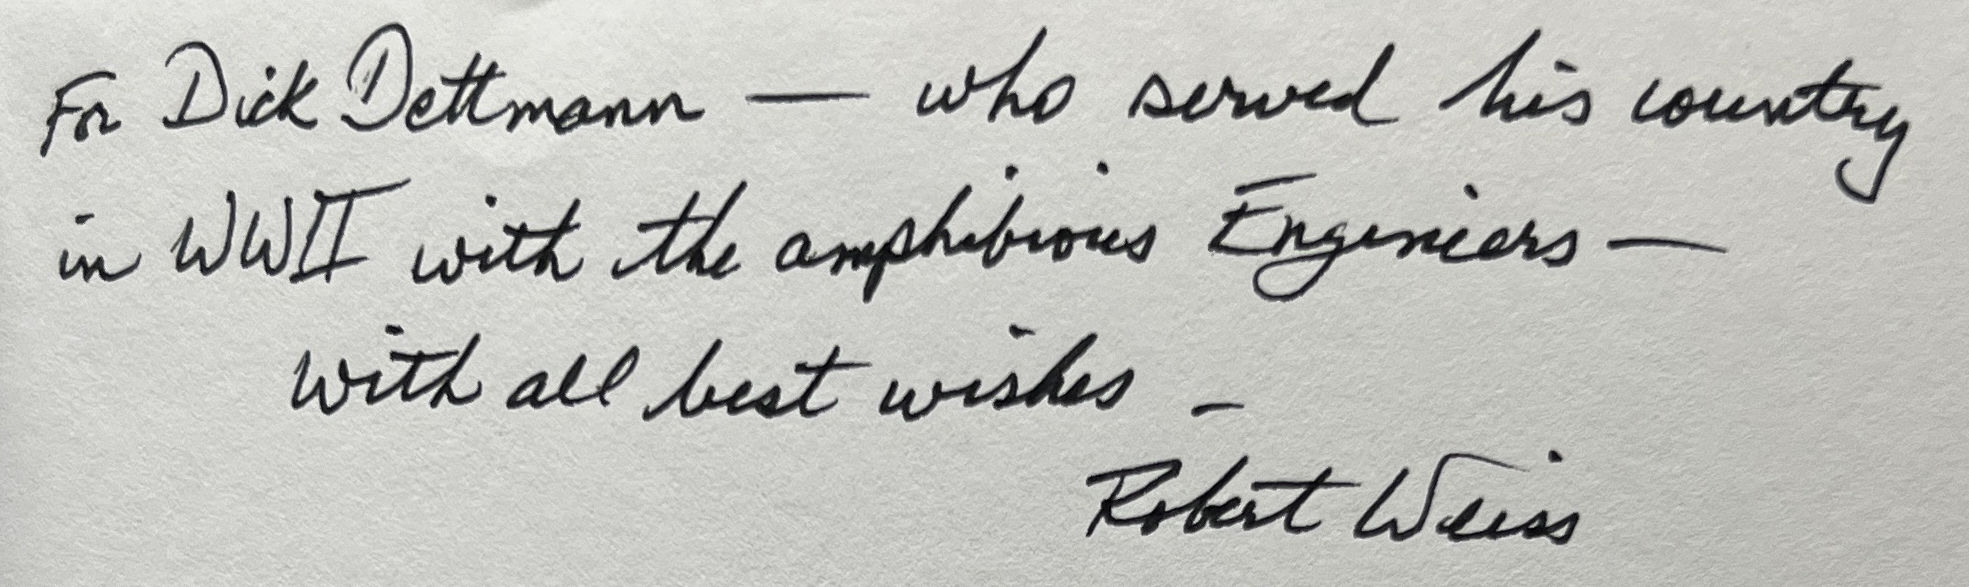 For Dick Dettmann — who served his country
in WWII with the amphibious Engineers —
with all best wishes –
Robert Weiss